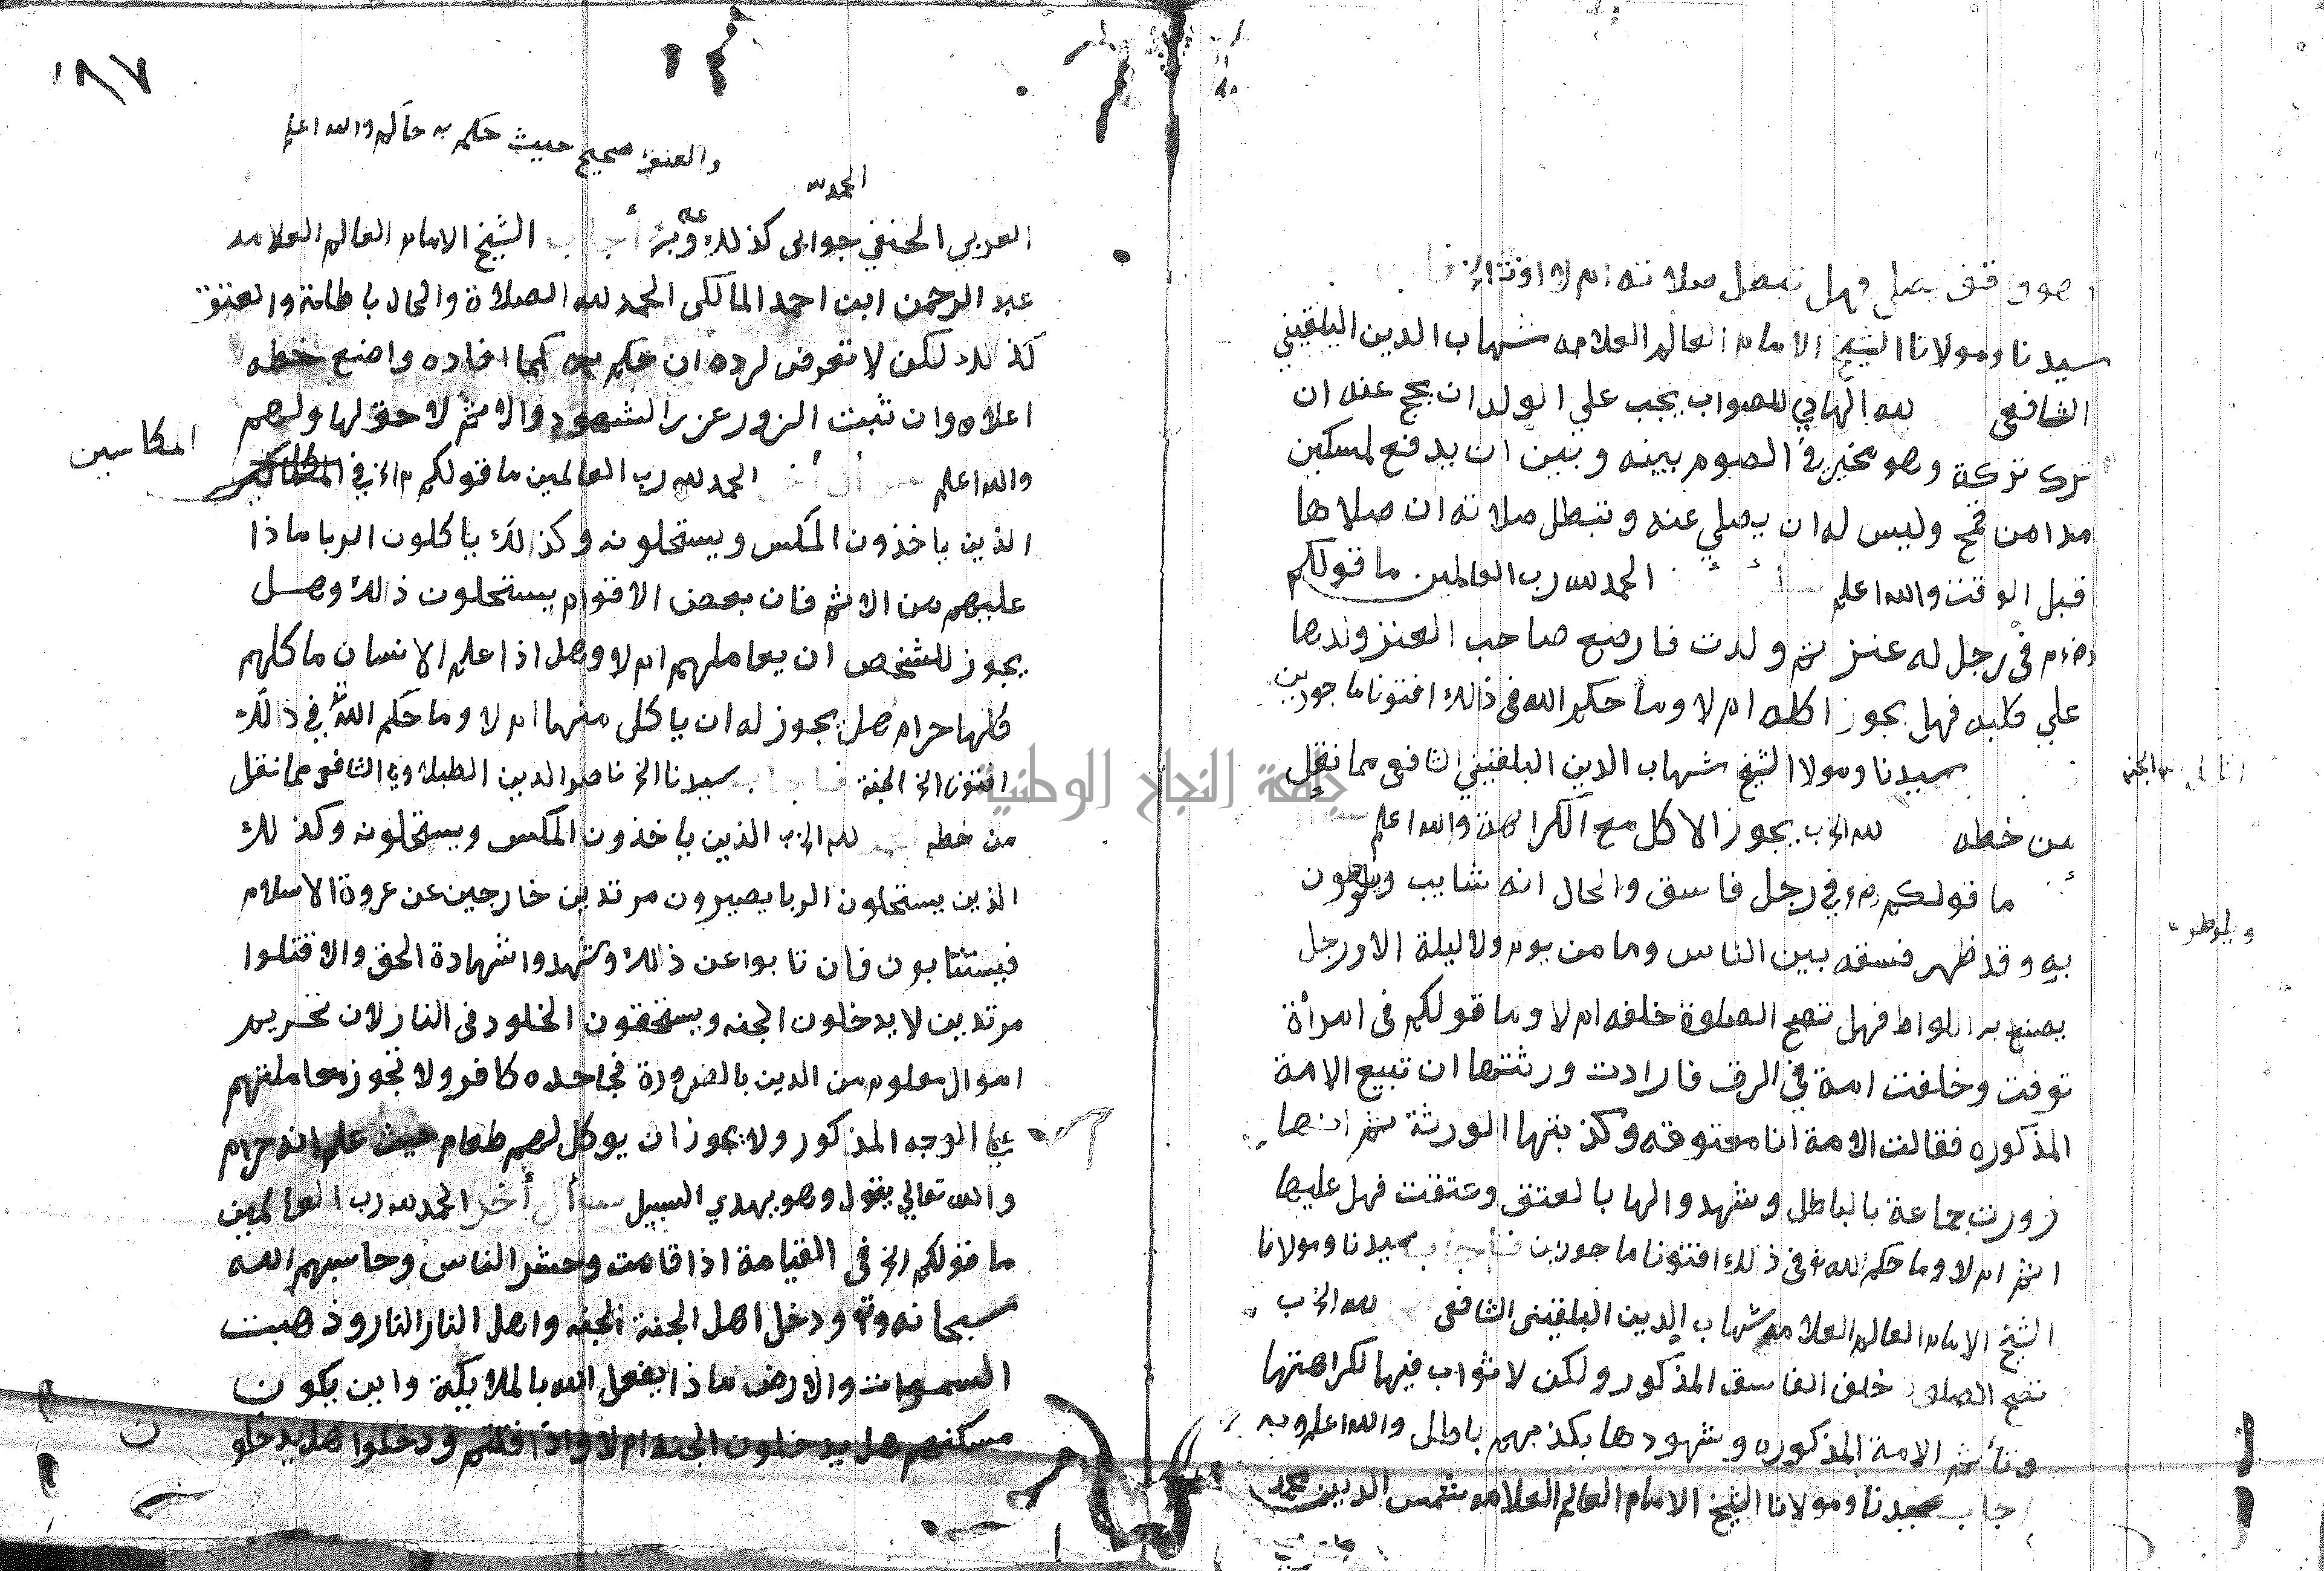 وهو واقف يصلي فهل تبطل صلاته ام لا افتونا الخ
سيدنا ومولانا الشيخ الامام العالم العلامه شهاب الدين البلقيني
الشافعى لله الهادي للصواب يجب علي الولد ان يحج عنه ان
ترك تركة وهو مخير في الصوم بينه وبين ان يدفع لمسكين
مدا من قمح وليس له ان يصلي عنه وتبطل صلاته ان صلاها
قبل الوقت والله اعلم الحمد لله رب العالمين ما قولكم
في رجل له عنز ثم ولدت فارضع صاحب العنز ولدها
علي كلبه فهل يجوز اكله ام لا وما حكم الله فى ذلك افتونا ماجورين
سيدنا ومولا الشيخ شهاب الدين البلقيني الشافعى مما نقل
من خطه لله الخ يجوز الاكل مع الكراهة والله اعلم
ما قولكم في رجل فاسق والحال انه شايب ويلوطون
به وقد ظهر فسقه بين الناس وما من يوم ولا ليلة الا ورجل
يصنع به اللواط فهل تصح الصلوة خلفه ام لا وما قولكم فى امرأة
توفت وخلفت امة في الرق فارادت ورثتها ان تبيع الامة
المذكوره فقالت الامة انا معتوقه وكذبتها الورثة ثم انها
زورت جماعة بالباطل وشهدوا لها بالعتق وعتقت فهل عليها
اثم ام لا وما حكم الله فى ذلك افتونا ماجورين فأجاب سيدنا ومولانا
الشيخ الامام العالم العلامه شهاب الدين البلقينى الشافعى لله الخ
تصح الصلوة خلف الفاسق المذكور ولكن لا ثواب فيها لكراهتها
وتأثم الامة المذكوره وشهودها بكذبهم باطل والله اعلم وبه
اجاب سيدنا ومولانا الشيخ الامام العالم العلامه شمس الدين محمد
١٨٧
والعتق صحيح حيث حكم به حاكم والله اعلم
الحمد لله
العربي الحنفي جوابى كذلك وبه أجاب الشيخ الامام العالم العلامه
عبد الرحمن ابن احمد المالكى الحمد لله الصلاة والحال باطلة والعتق
كذلك لكن لا تعرض لرده ان حكم به كما افاده واضع خطه
اعلاه وان ثبت الزور عزر الشهود والاثم لاحق لها ولهم
والله اعلم سؤال أخر الحمد لله رب العالمين ما قولكم في
المكاسين
الذين ياخذون المكس ويستحلونه وكذلك ياكلون الربا ماذا
عليهم من الاثم فان بعض الاقوام يستحلون ذلك وهل
يجوز للشخص ان يعاملهم ام لا وهل اذا علم الانسان ماكلهم
كلها حرام هل يجوز له ان ياكل منها ام لا وما حكم الله في ذلك
افتونا الخ الجنة فأجاب سيدنا الخ ناصر الدين الطبلاوي الشافعى مما نقل
من خطه لله الخ الذين ياخذون المكس ويستحلونه وكذلك
الذين يستحلون الربا يصيرون مرتدين خارجين عن عروة الاسلام
فيستتابون فان تابوا عن ذلك وشهدوا شهادة الحق والا قتلوا
مرتدين لا يدخلون الجنه ويستحقون الخلود فى النار لان تحريم
اموال معلوم من الدين بالضرورة فجاحده كافر ولا تجوز معاملتهم
علي الوجه المذكور ولا يجوز ان يوكل لهم طعام حيث علم انه حرام
والله تعالي يقول وهو يهدي السبيل سؤال أخر الحمد لله رب العالمين
ما قولكم الخ فى القيامة اذا قامت وحشر الناس وحاسبهم الله
سبحانه وتع ودخل اهل الجنة الجنه واهل النار النار وذهبت
السموات والارض ماذا يفعل الله بالملايكة واين يكون
مسكنهم هل يدخلون الجنه ام لا واذا قلتم ودخلوا هل يدخلو
ن
جامعة النجاح الوطنية